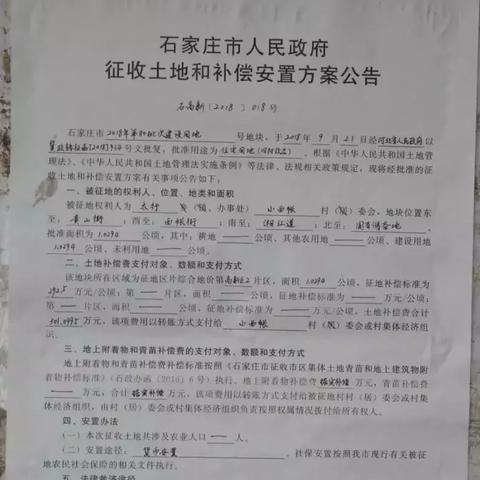 石家庄市人民政府
征收土地和补偿安置方案公告
石高新〔2018〕018号
石家庄市2018年第40批次建设用地 号地块，于2018年9月21日经河北省人民政府以
冀政转征函[2018]914号文批复，批准用途为住宅用地 。根据《中华人民共和国土地管
理法》、《中华人民共和国土地管理法实施条例》等法律、法规相关政策规定，现将经批准的征
收土地和补偿安置方案有关事项公告如下：
一、被征地的权利人、位置、地类和面积
被征地权利人为太行 （镇、办事处）小西帐 村（ ）委会。地块位置东
至：黄山街；西至：西帐街；南至：湘江道；北至：国有储备地。
批准面积为1.0294公顷，其中：耕地——公顷，其他农用地——公顷、建设用地
1.0294公顷、未利用地——公顷。
二、土地补偿费支付对象、数额和支付方式
该地块所在区域为征地区片综合地价第高新区2片区，面积1.0294公顷，征地补偿标准为
292.5万元/公顷；第——片区，面积——公顷，征地补偿标准为——万元/公顷；
第——片区，面积——公顷，征地补偿标准为——万元/公顷，土地补偿费合计
301.0995万元，该项费用以转账方式支付给小西帐 村（ ）委会或村集体经济组
织。
三、地上附着物和青苗补偿费的支付对象、数额和支付方式
地上附着物和青苗补偿费补偿标准按照《石家庄市征收市区集体土地青苗和地上建筑物附
着物补偿标准》（石政办函〔2016〕6号）执行。地上附着物补偿费据实补偿万元，青苗补偿费
——万元，合计据实补偿万元，该项费用以转账方式支付给被征地村村（居）委会或村集
体经济组织，由村（居）委会或村集体经济组织负责按照权属情况拨付给所有权人。
四、安置办法
（一）本次征收土地共涉及农业人口——人。
（二）安置途径：货币安置 。社保安置按照我市现行有关被征
地农民社会保险的相关文件执行。
五、法律救济途径